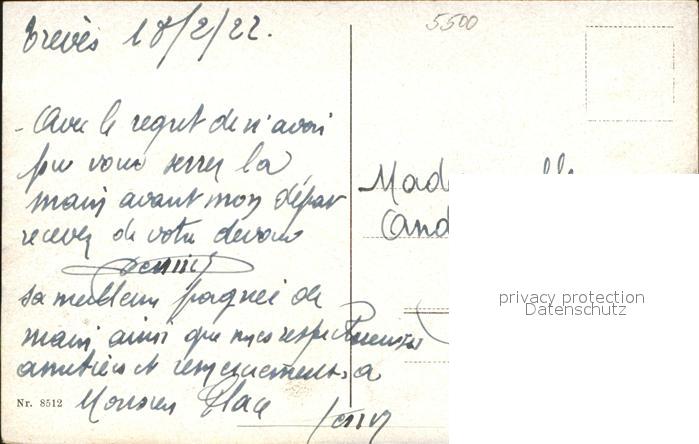 Trevès 18/2/22.
5500
- Avec le regret de n'avoir
pu vous serrer la
main avant mon départ
recevez de votre devoué
sa meilleure poignée de
main ainsi que mes respectueuses
amitiés et remerciements a
Monsieur Place
Mad
Cand
privacy protection
Datenschutz
Nr. 8512